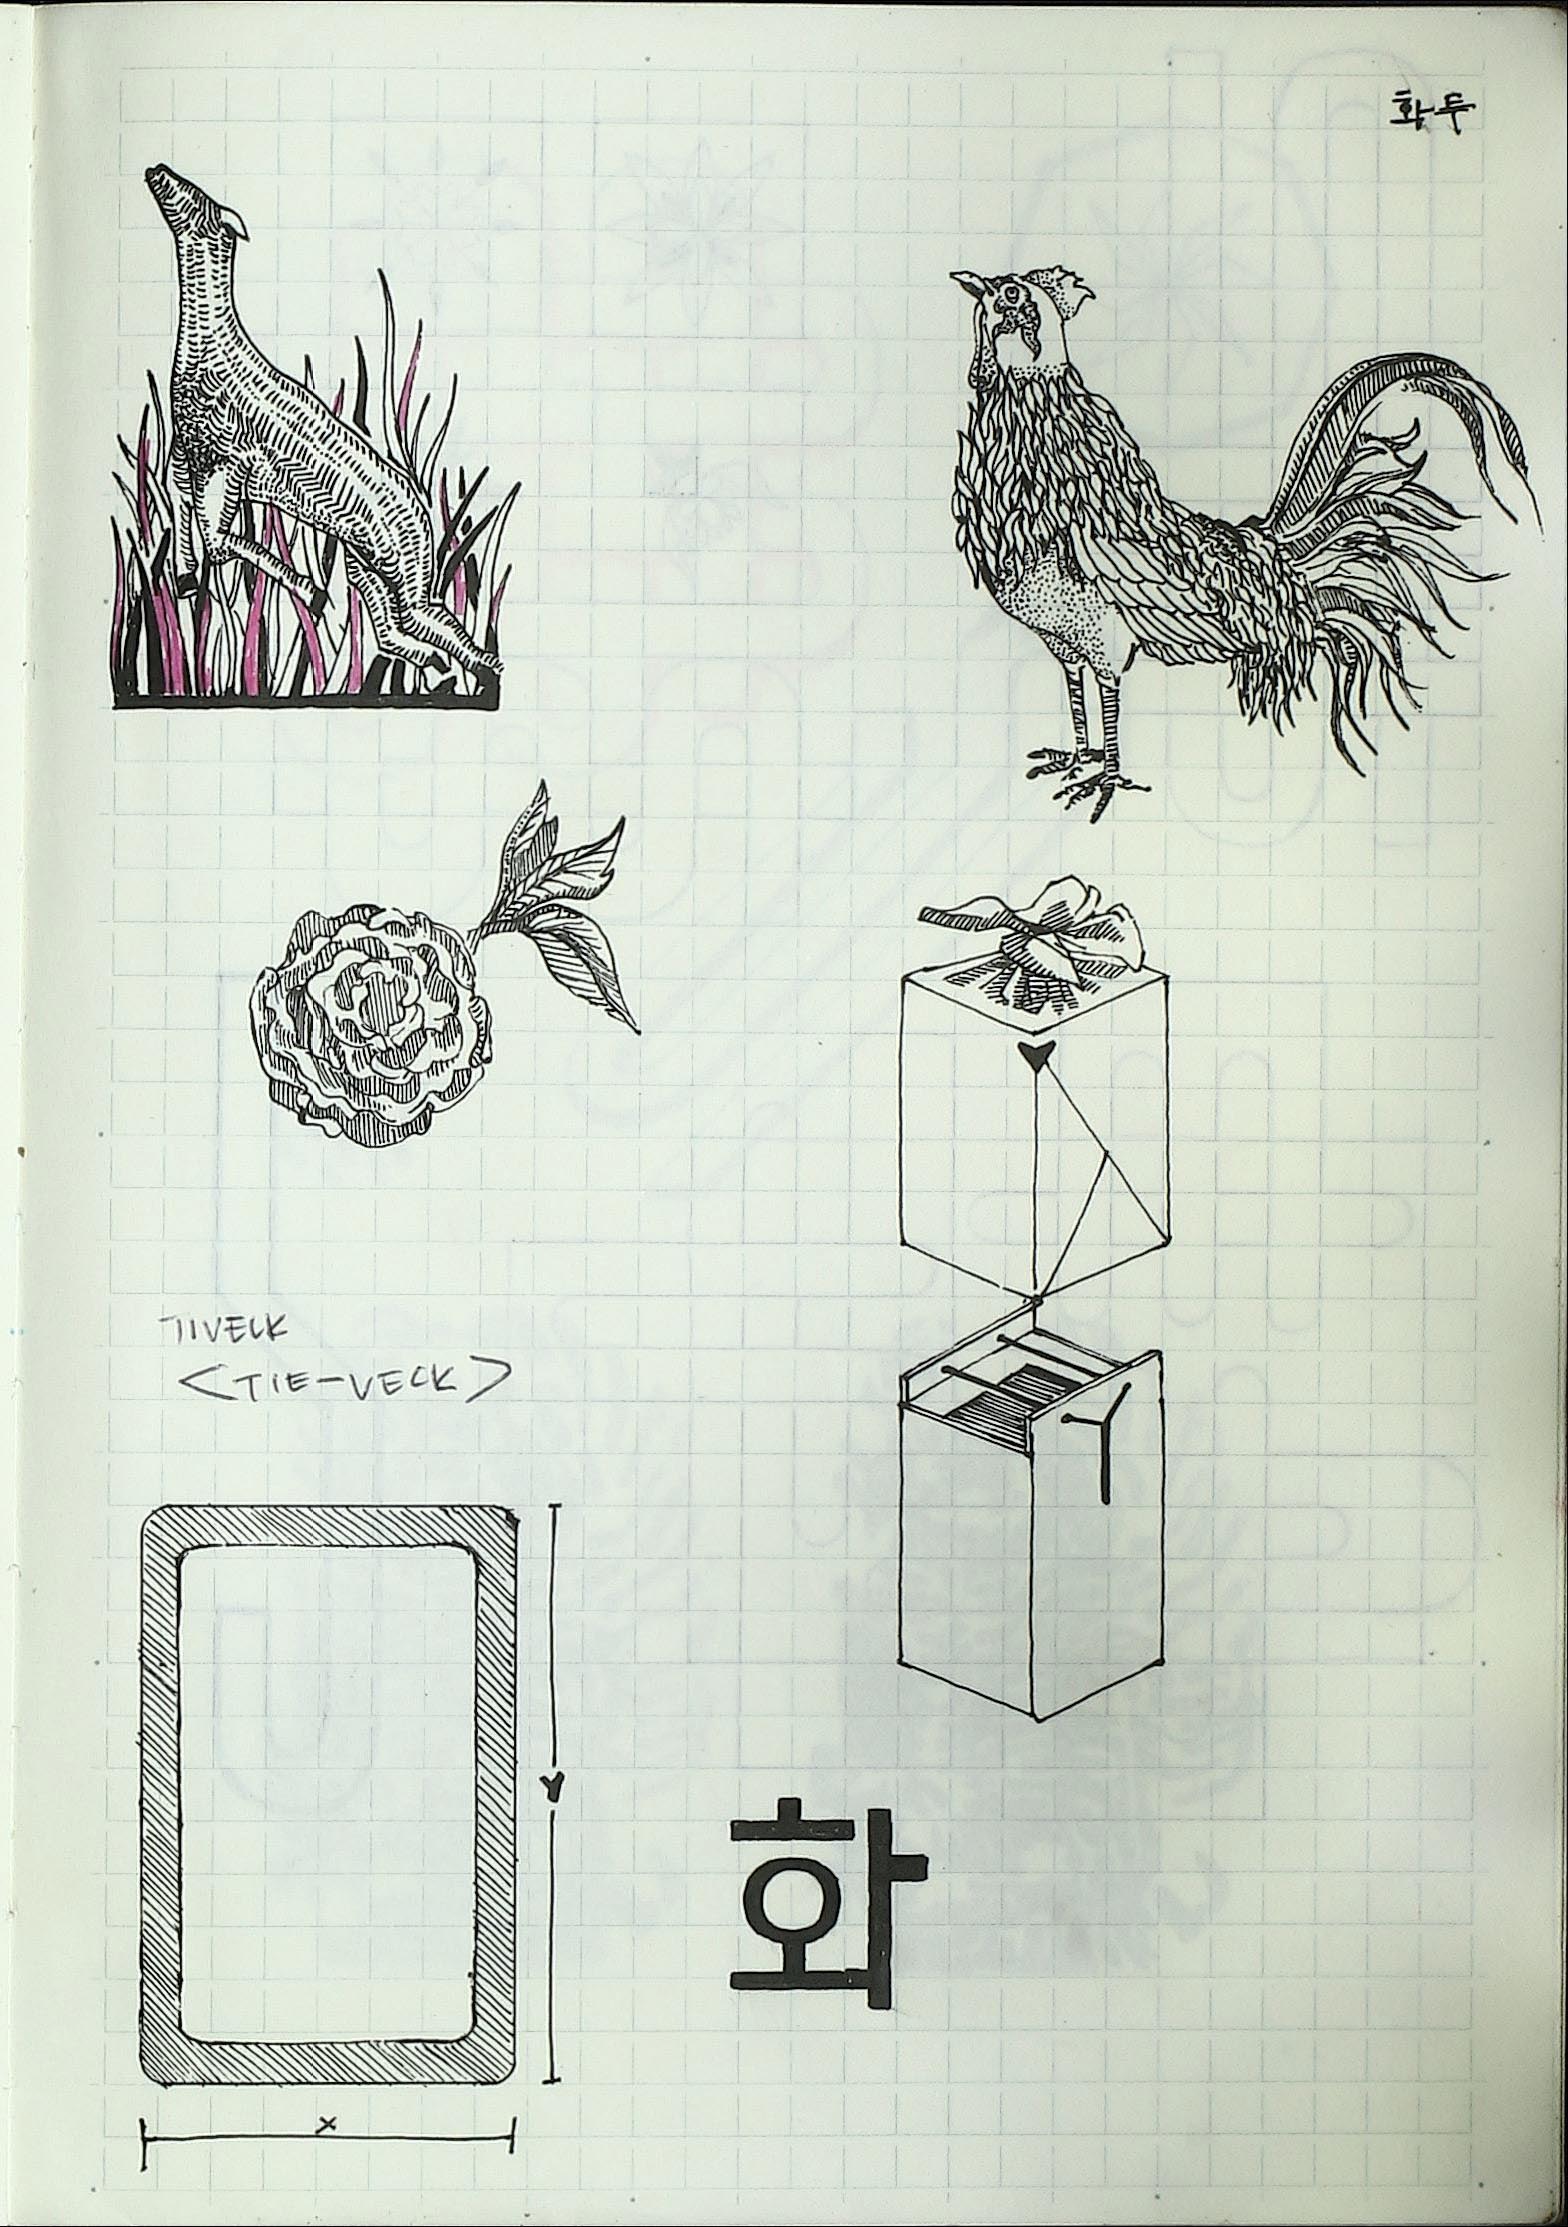 화두
TIVECK
<TIE-VECK>
Y
화
X